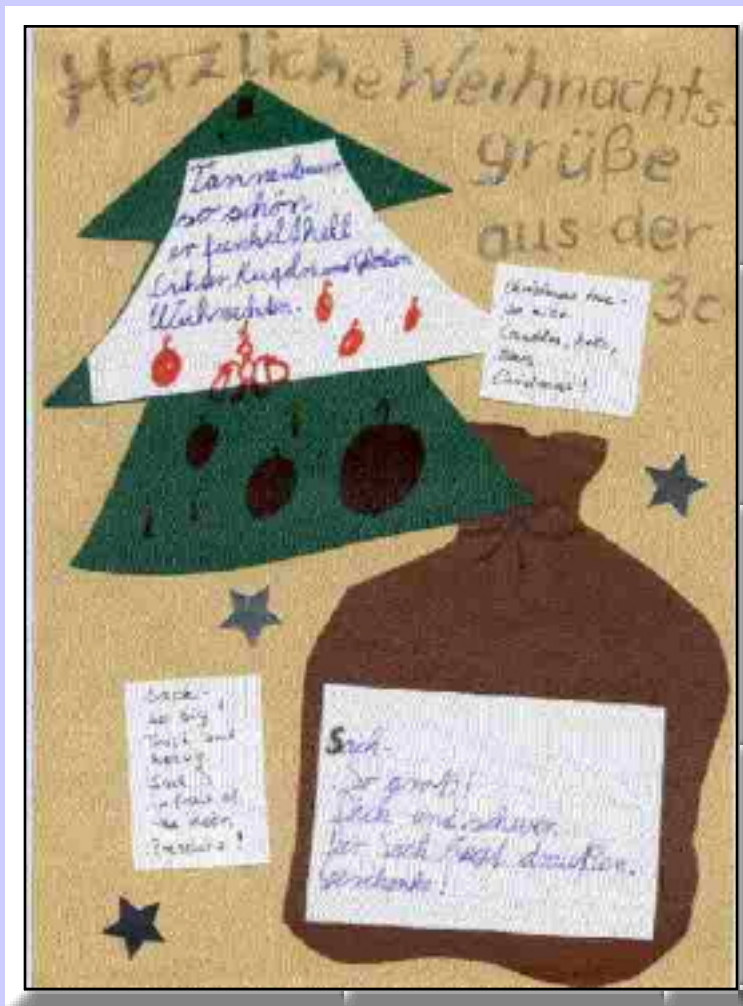 Herzliche Weihnachts-
grüße
aus der
3c
Tannenbaum
so schön
er funkelt hell
Lichter, Kugeln und Glocken
Weihnachten.
Christmas tree-
so nice
Candles, bells,
Christmas!
Sack-
so big!
Thick and
heavy
Sack
in front of
the door,
Presents!
Sack-
So groß!
Dick und schwer.
Der Sack liegt draußen.
Geschenke!